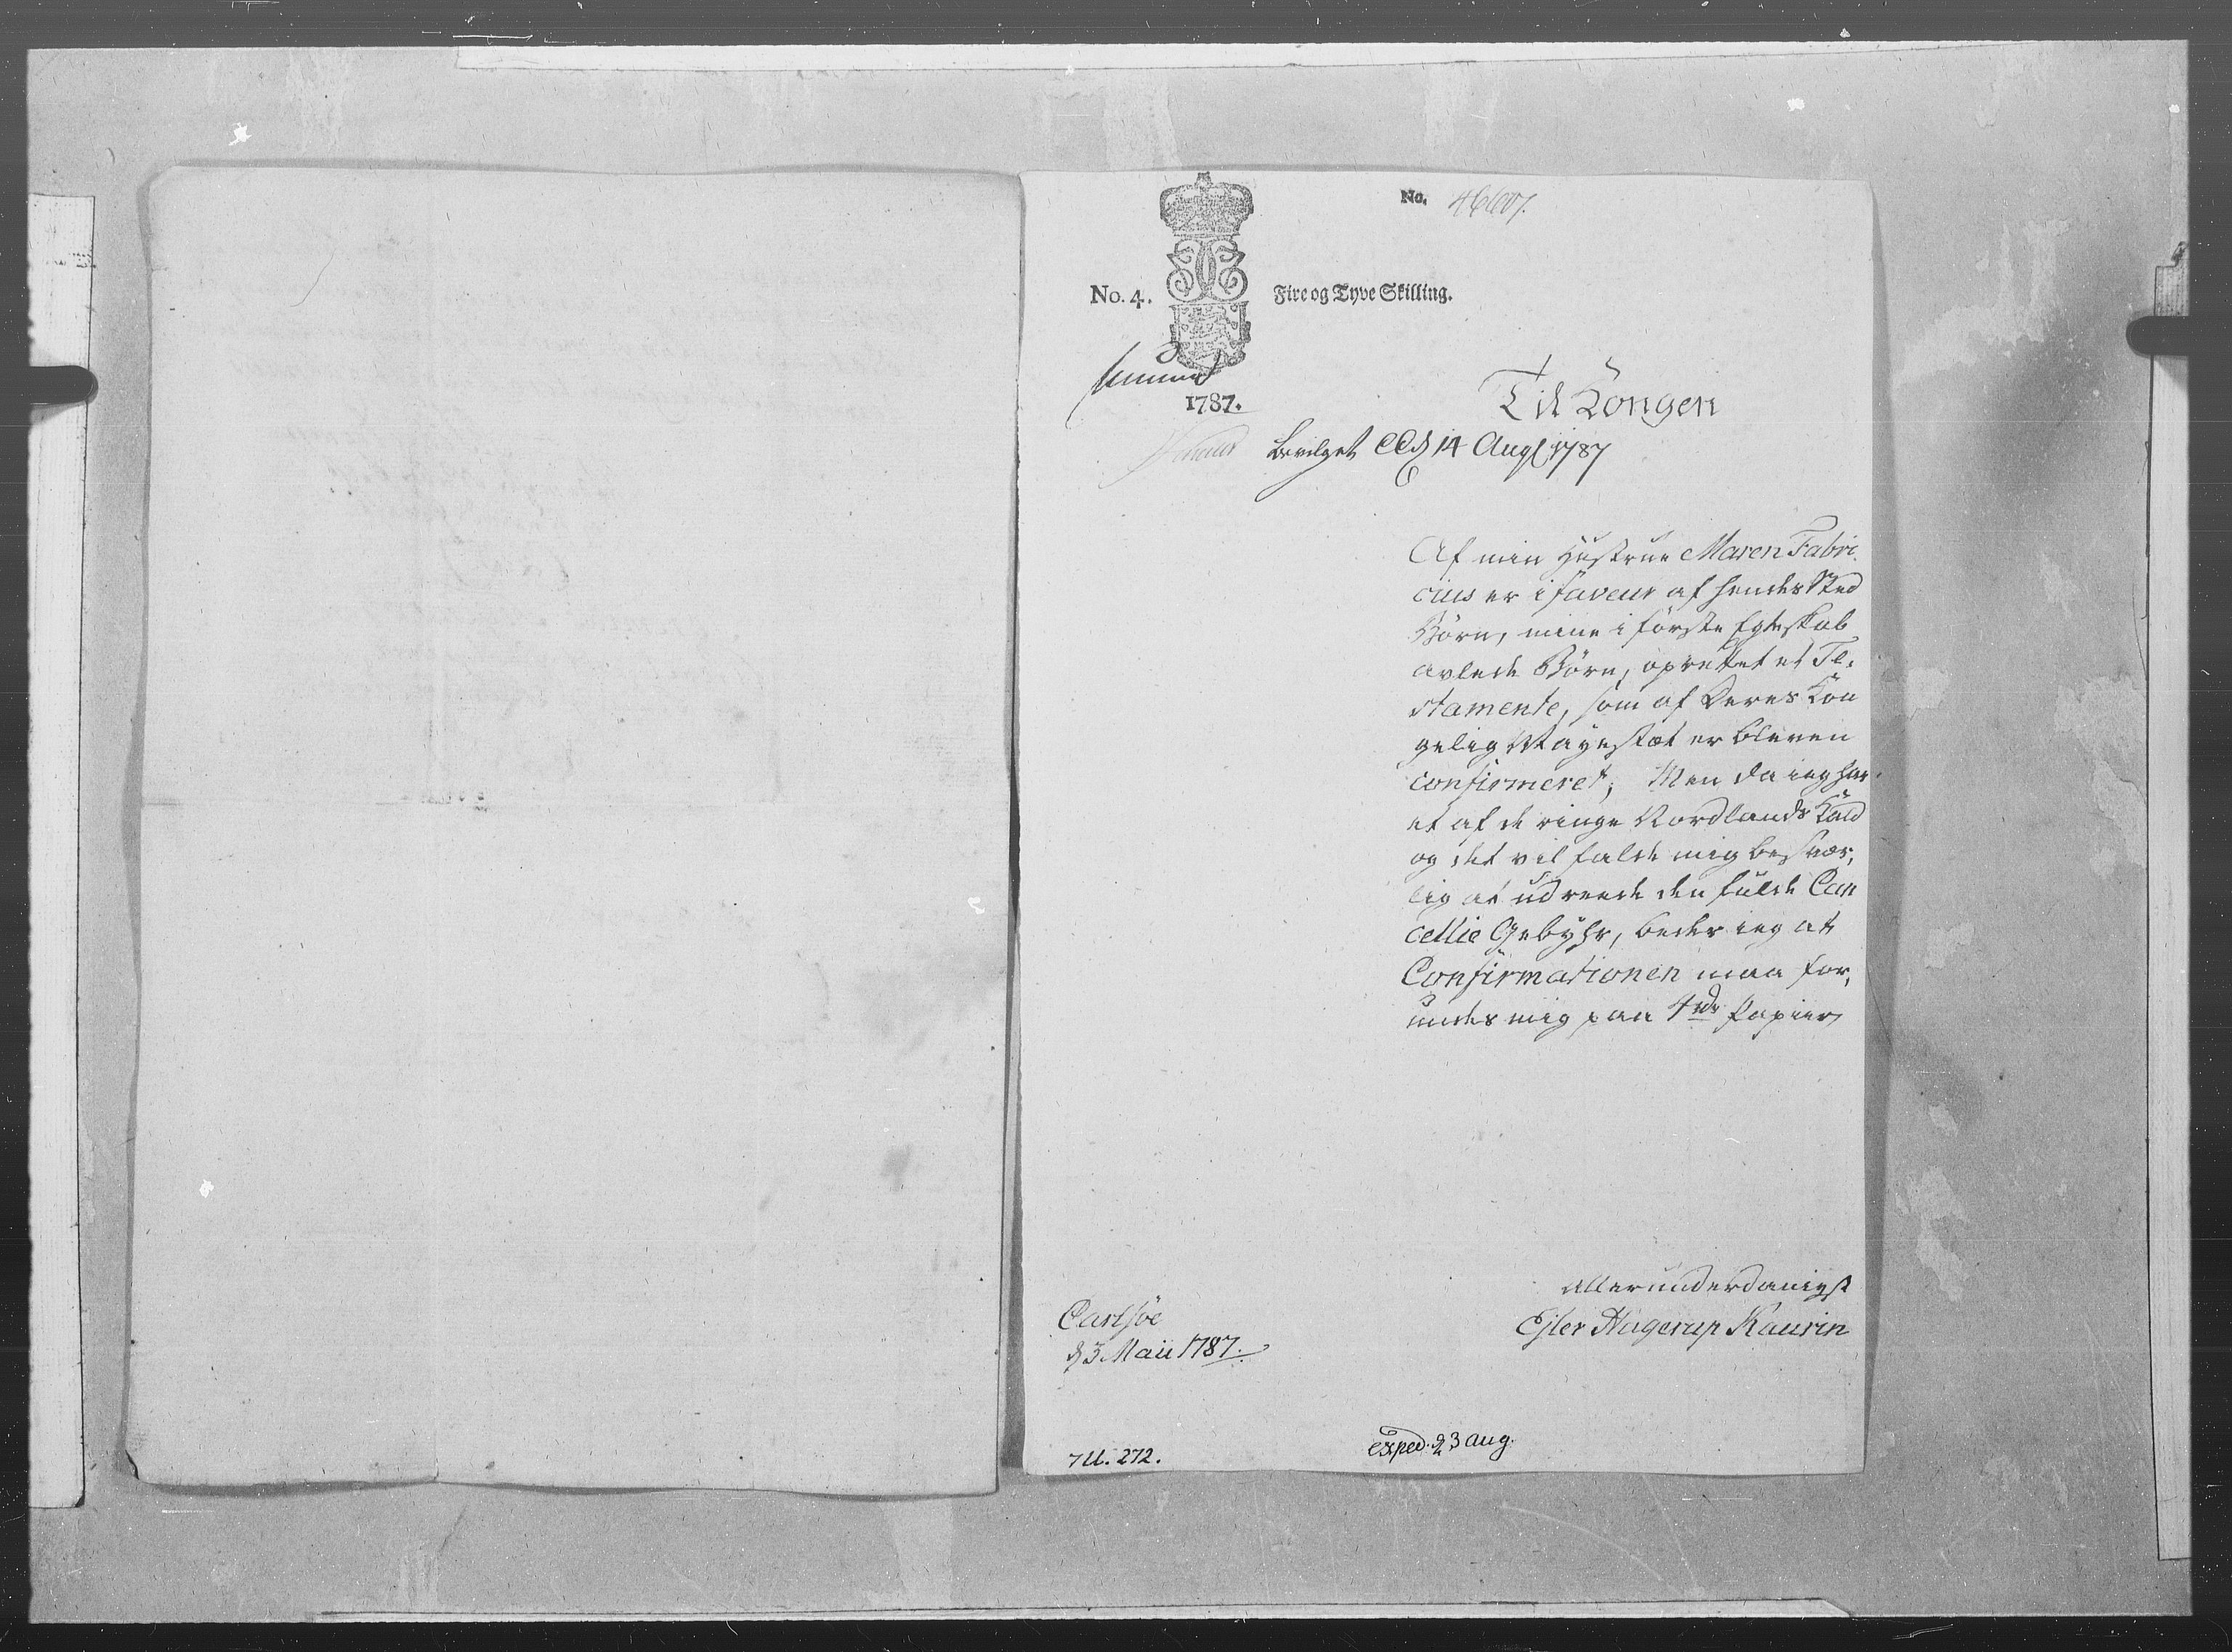 No. 4607.
No. 4.
Fire og Tyve Skilling.
1787.
Til Kongen
bevilget d 14 Aug 1787
Af min Hustrue Maren Fabri
cius er i faveur af hendes Sted
Börn, mine i förste Egteskab
avlede Börn, oprettet et Te,
stamente, som af Deres Kon
gelig Mayestæt er bleven
confirmeret; Men da ieg har
et af de ringe Nordlands Kald
og det vil falde mig besvær,
lig at udreede den fulde Can
cellie Gebyhr, beder ieg at
Confirmationen maa for,
undes mig paa 4 rdr Papiir
Allerunderdanigst
Ejler Hagerup Kaurin
Carlsöe
d 3 Maii 1787.
7 U. 272.
exped. 23 aug.